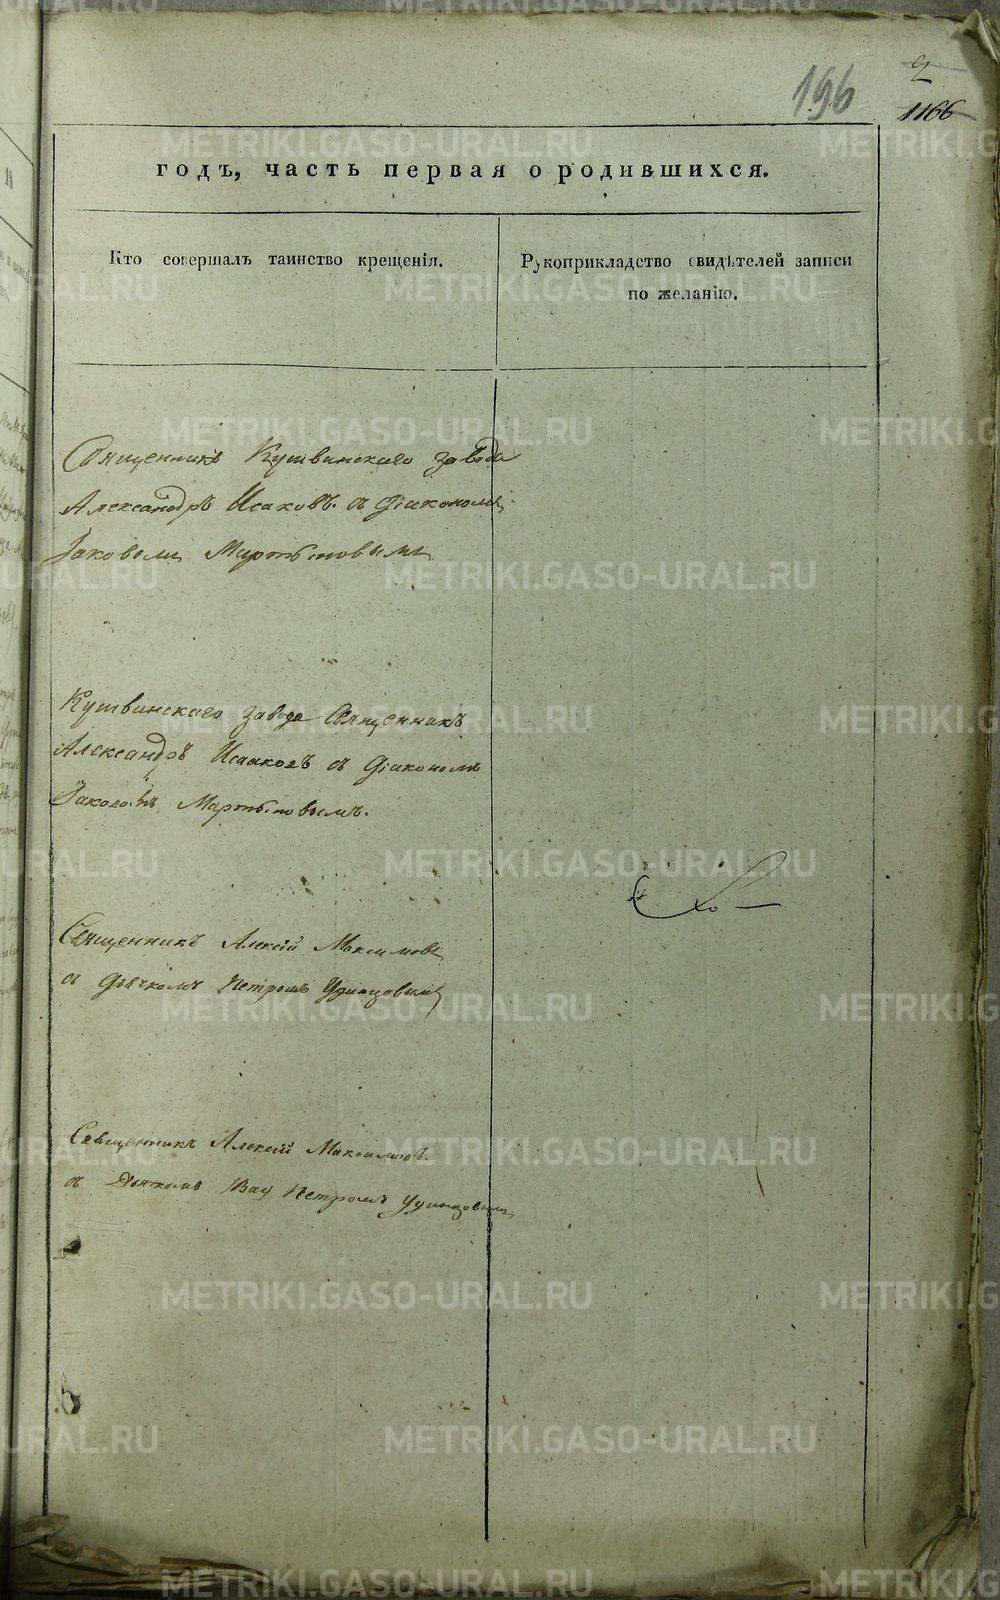 196
2
1166
годъ, часть первая о родившихся.
Кто совершалъ таинство крещенія.
Рукоприкладство свидѣтелей записи
по желанію.
Священникъ Кушвинскаго завода
Александръ Исаковъ съ Діакономъ
Іаковомъ Мартыновымъ
Кушвинскаго завода Священникъ
Александръ Исаковъ съ Діакономъ
Іаковомъ Мартыновымъ.
Священникъ Алексій Максимовъ
съ дьячкомъ Петромъ Удинцовымъ
Священникъ Алексій Максимовъ
съ Дьячкомъ Петромъ Удинцовымъ
METRIKI.GASO-URAL.RU